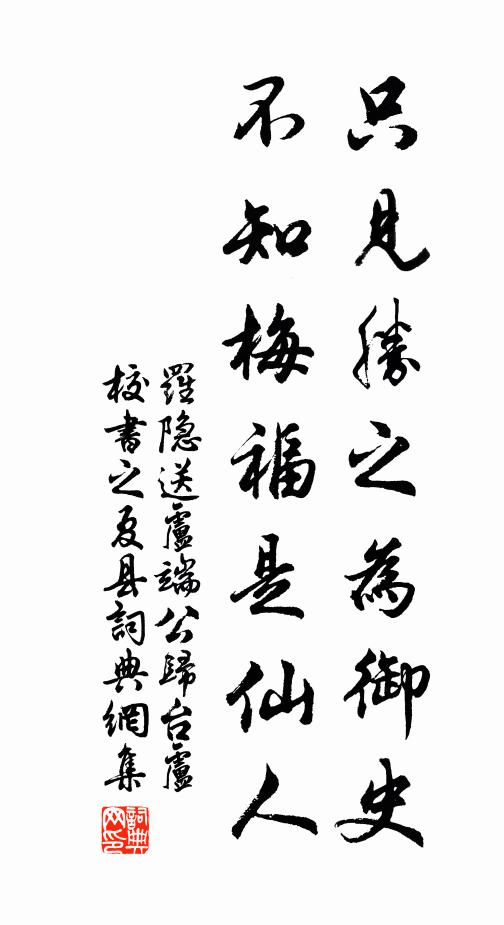 只見勝之為御史
不知梅福是仙人
羅隐送盧端公歸台盧
校書之夏县詞典網集
詞典网印